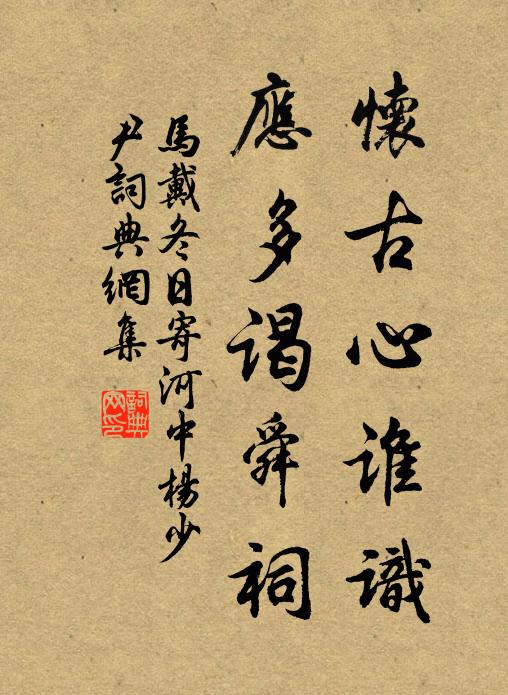 懷古心誰識
應多謁舜祠
馬戴冬日寄河中楊少
尹詞典網集
詞典网印